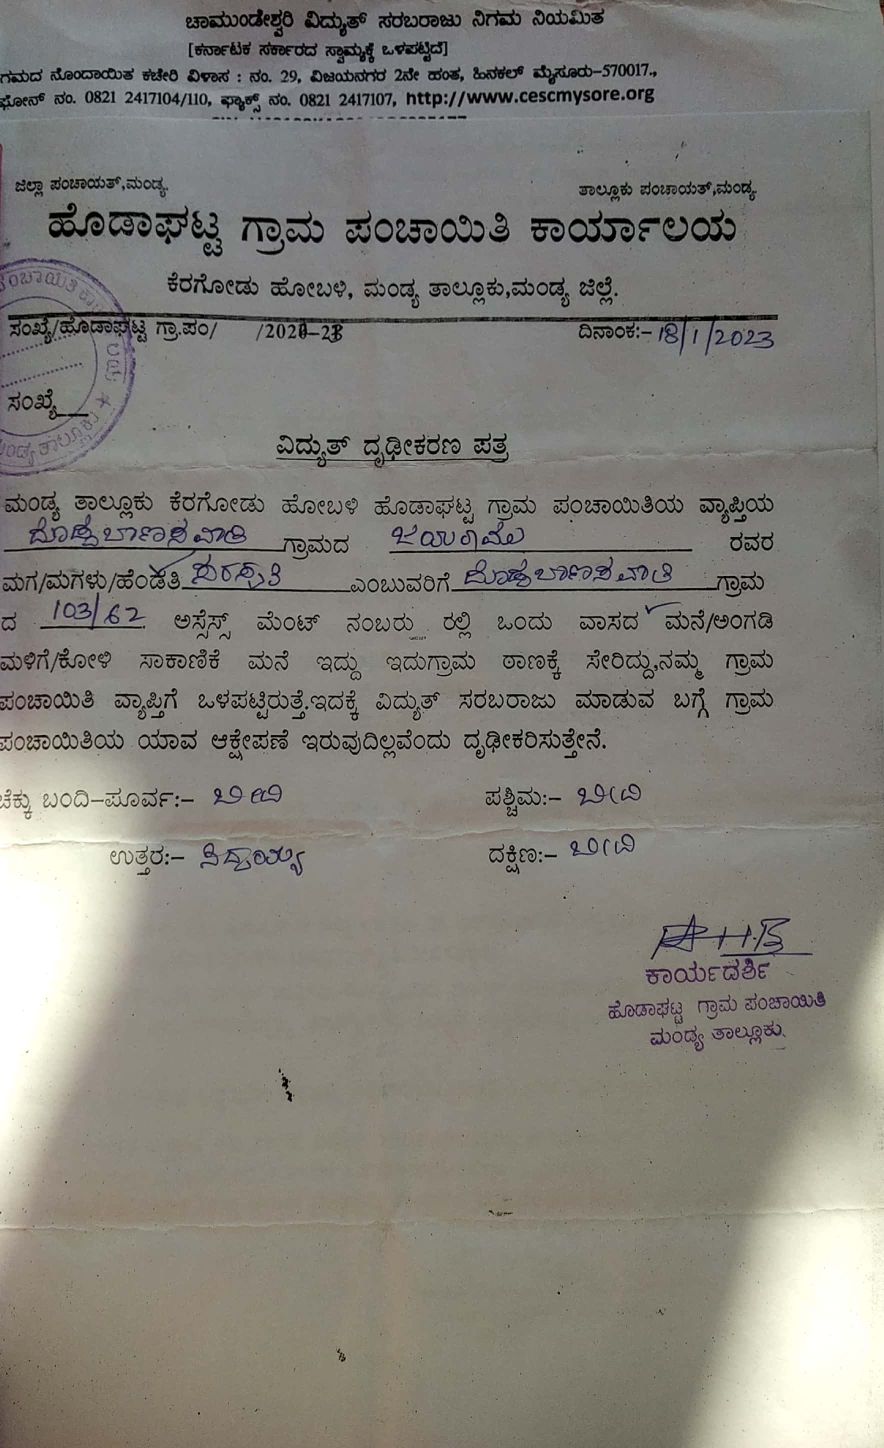 ಚಾಮುಂಡೇಶ್ವರಿ ವಿದ್ಯುತ್ ಸರಬರಾಜು ನಿಗಮ ನಿಯಮಿತ
[ಕರ್ನಾಟಕ ಸರ್ಕಾರದ ಸ್ವಾಮ್ಯಕ್ಕೆ ಒಳಪಟ್ಟಿದೆ]
ಗಮದ ನೊಂದಾಯಿತ ಕಚೇರಿ ವಿಳಾಸ : ನಂ. 29, ವಿಜಯನಗರ 2ನೇ ಹಂತ, ಹಿನಕಲ್ ಮೈಸೂರು-570017.,
ಫೋನ್ ನಂ. 0821 2417104/110, ಫ್ಯಾಕ್ಸ್ ನಂ. 0821 2417107, http://www.cescmysore.org
ಜಿಲ್ಲಾ ಪಂಚಾಯತ್,ಮಂಡ್ಯ. ತಾಲ್ಲೂಕು ಪಂಚಾಯತ್,ಮಂಡ್ಯ.
ಹೊಡಾಘಟ್ಟ ಗ್ರಾಮ ಪಂಚಾಯಿತಿ ಕಾರ್ಯಾಲಯ
ಕೆರಗೋಡು ಹೋಬಳಿ, ಮಂಡ್ಯ ತಾಲ್ಲೂಕು,ಮಂಡ್ಯ ಜಿಲ್ಲೆ.
ಸಂಖ್ಯೆ/ಹೊಡಾಘಟ್ಟ ಗ್ರಾ.ಪಂ/ /2022-23 ದಿನಾಂಕ:- 18/1/2023
ಸಂಖ್ಯೆ
ವಿದ್ಯುತ್ ದೃಢೀಕರಣ ಪತ್ರ
ಮಂಡ್ಯ ತಾಲ್ಲೂಕು ಕೆರಗೋಡು ಹೋಬಳಿ ಹೊಡಾಘಟ್ಟ ಗ್ರಾಮ ಪಂಚಾಯಿತಿಯ ವ್ಯಾಪ್ತಿಯ
ದೊಡ್ಡಬಾಣಸವಾಡಿ ಗ್ರಾಮದ ರವರ
ಮಗ/ಮಗಳು/ಹೆಂಡತಿ ಎಂಬುವರಿಗೆ ದೊಡ್ಡಬಾಣಸವಾಡಿ ಗ್ರಾಮ
ದ 103/62 ಅಸ್ಸೆಸ್ಸ್ ಮೆಂಟ್ ನಂಬರು ರಲ್ಲಿ ಒಂದು ವಾಸದ ಮನೆ/ಅಂಗಡಿ
ಮಳಿಗೆ/ಕೋಳಿ ಸಾಕಾಣಿಕೆ ಮನೆ ಇದ್ದು ಇದುಗ್ರಾಮ ಠಾಣಕ್ಕೆ ಸೇರಿದ್ದು,ನಮ್ಮ ಗ್ರಾಮ
ಪಂಚಾಯಿತಿ ವ್ಯಾಪ್ತಿಗೆ ಒಳಪಟ್ಟಿರುತ್ತೆ.ಇದಕ್ಕೆ ವಿದ್ಯುತ್ ಸರಬರಾಜು ಮಾಡುವ ಬಗ್ಗೆ ಗ್ರಾಮ
ಪಂಚಾಯಿತಿಯ ಯಾವ ಆಕ್ಷೇಪಣೆ ಇರುವುದಿಲ್ಲವೆಂದು ದೃಢೀಕರಿಸುತ್ತೇನೆ.
ಚೆಕ್ಕು ಬಂದಿ-ಪೂರ್ವ:- ಬೀದಿ ಪಶ್ಚಿಮ:- ಬೀದಿ
ಉತ್ತರ:- ಸಿದ್ದಯ್ಯ ದಕ್ಷಿಣ:- ಬೀದಿ
ಕಾರ್ಯದರ್ಶಿ
ಹೊಡಾಘಟ್ಟ ಗ್ರಾಮ ಪಂಚಾಯಿತಿ
ಮಂಡ್ಯ ತಾಲ್ಲೂಕು.